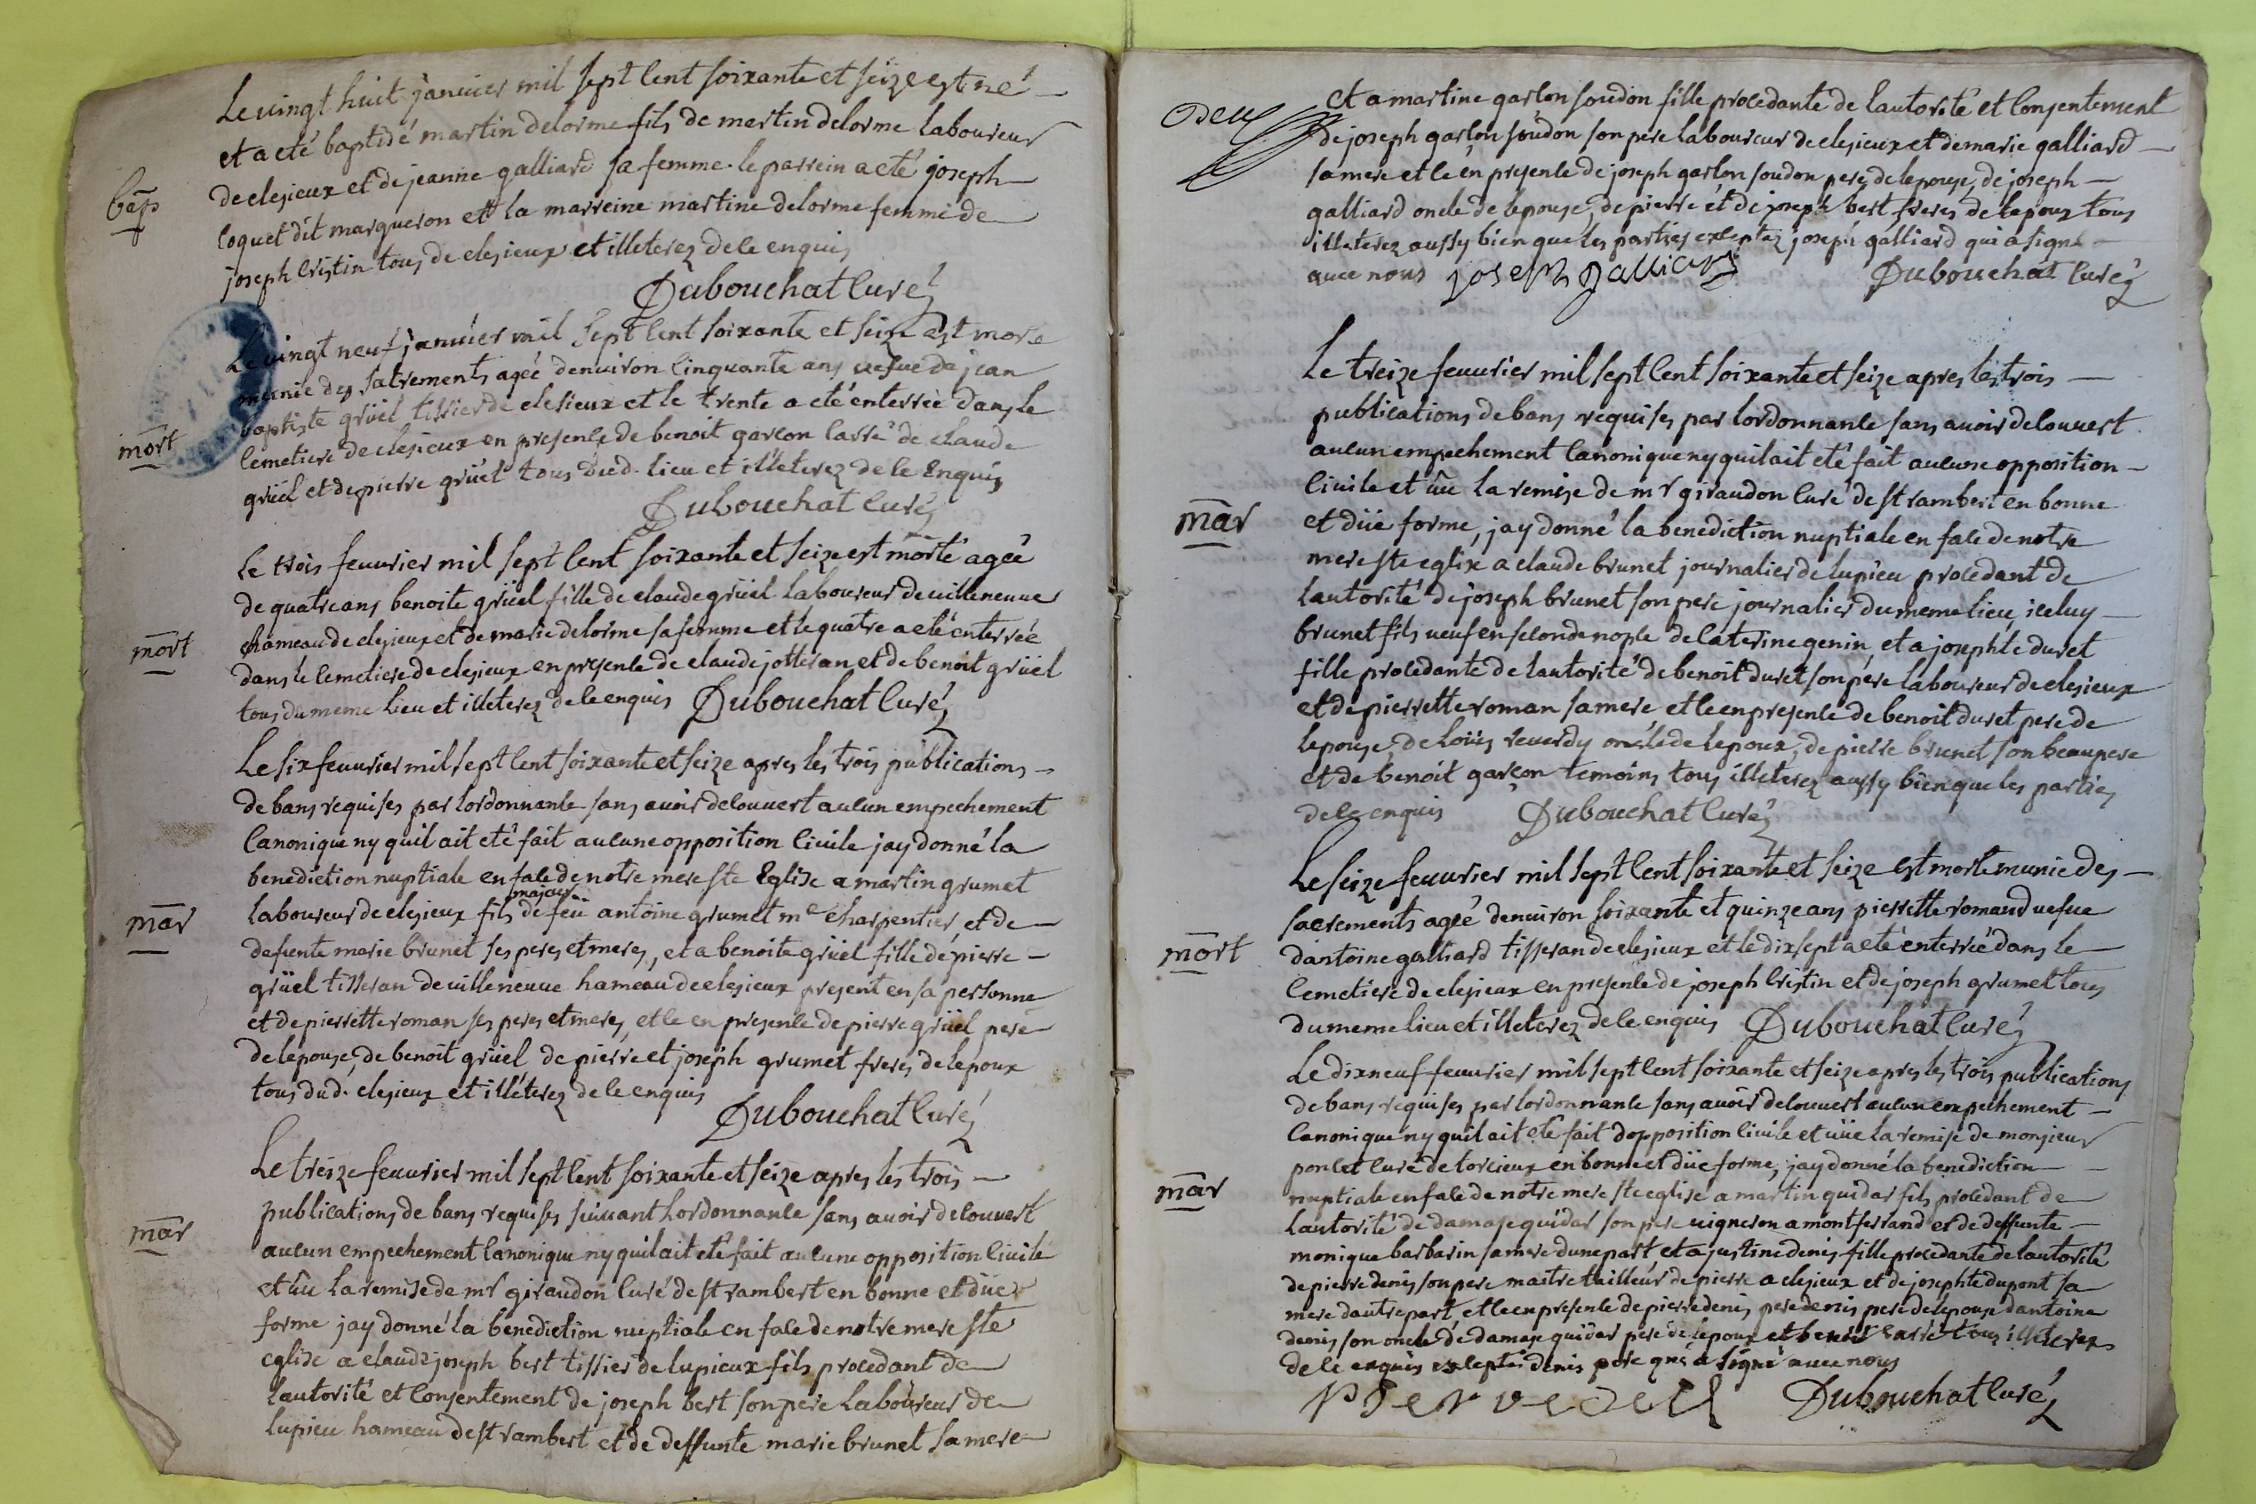 Le vingt huit januier mil sept cent soixante et seize est né
et a eté baptisé martin delorme fils de martin delorme laboureur
de clesieux et de jeanne galliard sa femme. le parrein a eté joseph
coquet dit marqueron et la marreine martine delorme femme de
joseph cristin tous de clesieux et illeterez de ce enquis
bap
Dubouchat curé
Le vingt neuf januier mil sept cent soixante et seize est morte
munie des sacrements agée denuiron cinquante ans vefue de jean
baptiste grüel tissier de clesieux et le trente a eté enterrée dans le
cemetiere de clesieux en presence de benoit garcon carré de claude
grüel et de pierre grüel tous dud. lieu et illeterez de ce enquis
mort
Dubouchat curé
Le trois feuurier mil sept cent soixante et seize est morte agée
de quatre ans benoite grüel fille de claude grüel laboureur de uilleneuue
hameau de clesieux et de marie delorme sa femme et le quatre a eté enterrée
dans le cemetiere de clesieux en presence de claude jotteran et de benoit grüel
tous du meme lieu et illeterez de ce enquis Dubouchat curé
mort
Le six feuurier mil sept cent soixante et seize apres les trois publications
de bans requises par lordonnance sans auoir decouuert aucun empechement
canonique ny quil ait eté fait aucune opposition ciuile jay donné la
benediction nuptiale en face de notre mere ste Eglise a martin grumet
majeur
laboureur de clesieux fils de feü antoine grumet me charpentier, et de
defunte marie brunet ses peres et meres, et a benoite grüel fille de pierre
grüel tisseran de uilleneuue hameau de clesieux present en sa personne
et de pierrette roman ses peres et meres, et ce en presence de pierre grüel pere
de lepouse, de benoit grüel, de pierre et joseph grumet freres de lepoux
tous dud. clesieux et illéterez de ce enquis
mar
Dubouchat curé
Le treize feuurier mil sept cent soixante et seize apres les trois
publications de bans requises suiuant lordonnance sans auoir decouuert
aucun empechement canonique ny quil ait eté fait aucune opposition ciuile
et uüe la remise de mr giraudon curé de st rambert en bonne et düe
forme jay donné la benediction nuptiale en face de notre mere ste
eglise a claude joseph bert tissier de lupieux fils procedant de
lautorité et consentement de joseph bert son pere laboureur de
lupieu hameau de st rambert et de deffunte marie brunet sa mere
mar
Deux
et a martine garlon soudon fille procedante de lautorité et consentement
de joseph garlon soudon son pere laboureur de clesieux et de marie galliard
sa mere et ce en presence de joseph garlon soudon pere de lepouse, de joseph
galliard oncle de lépouse, de pierre et de joseph bert freres de lepoux tous
illeterez aussy bien que les parties exceptez joseph galliard qui a signé
auec nous joseph galliard Dubouchat curé
Le treize feuurier mil sept cent soixante et seize apres les trois
publications de bans requises par lordonnance sans auoir decouuert
aucun empechement canonique ny quil ait eté fait aucune opposition
ciuile et uüe la remise de mr giraudon curé de st rambert en bonne
et düe forme, jay donné la benediction nuptiale en face de notre
mere ste eglise a claude brunet journalier de lupieu procedant de
lautorité de joseph brunet son pere journalier du meme lieu, iceluy
brunet fils ueuf en seconde nople de caterine genin, et a josephte duret
fille procedante de lautorité de benoit duret son père laboureur de clesieux
et de pierrette roman sa mere et ce en presence de benoit duret pere de
lepouse, de loüis reuerdy oncle de lepoux, de pierre brunet son beaupere
et de benoit garçon temoins tous illéterez aussy bien que les parties
de ce enquis Dubouchat curé
mar
Le seize feuurier mil sept cent soixante et seize est morte munie des
sacrements agée denuiron soixante et quinze ans pierrette romand uefue
dantoine galliard tisseran de clesieux et le dixsept a eté enterrée dans le
cemetiere de clesieux en presence de joseph cristin et de joseph grumet tous
du meme lieu et illeterez de ce enquis Dubouchat curé
mort
Le dixneuf feuurier mil sept cent soixante et seize apres les trois publications
de bans requises par lordonnance sans auoir decouuert aucun empechement
canonique ny quil ait eté fait dopposition ciuile et uüe la remise de monsieur
poncet curé de torcieux en bonne et düe forme, jay donné la benediction
nuptiale en face de notre mere ste eglise a martin quidar fils procedant de
lautorité de damase quidar son pere uigneron a montferrand et de deffunte
monique barbarin sa mere dune part, et a justine denis fille procedante de lautorité
de pierre denis son pere maitre tailleur de pierre a clesieux et de josephte dupont sa
mere dautre part, et ce en presence de pierre denis pere denis pere de lépouse dantoine
denis son oncle de damase quidar pere de lepoux et benoit carré tous illeterez
de ce enquis excepté denis pere qui a signé auec nous
mar
Dubouchat curé